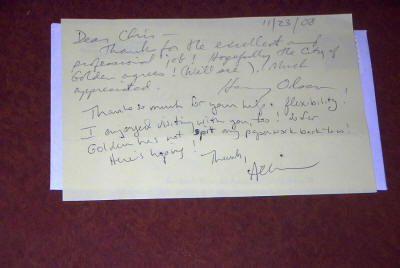 11/23/08
Dear Chris —
Thanks for the excellent and
professional job! Hopefully the City of
Golden agrees! (We'll see). Much
appreciated.
Olson
Thanks so much for your help + flexibility!
I enjoyed visiting with you, too! So far
Golden has not spit any paperwork back to us!
Here's hoping!
Thanks,